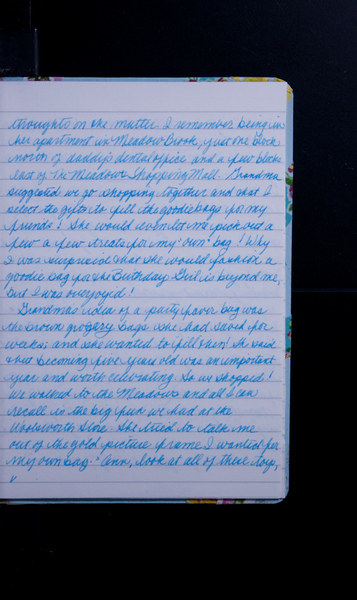 thoughts on the matter. I remember being in
her apartment in Meadow Brook, just one block
north of daddy's dental office and a few blocks
east of the Meadows Shopping Mall. Grandma
suggested we go shopping together and that I
select the gifts to fill the goodie bags for my
friends! She would even let me pick out a
few a few treats for my "own" bag! Why
I was surprised that she would fashion a
goodie bag for the Birthday Girl is beyond me,
but I was overjoyed!
Grandma's idea of a party favor bag was
the brown grocery bags she had saved for
weeks, and she wanted to fill them! She said
that becoming five years old was an important
year and worth celebrating. So we shopped!
We walked to the Meadows and all I can
recall is the big fun we had at the
Woolsworth Store. She tried to talk me
out of the gold picture frame I wanted for
my own bag. "Ann, look at all of these toys,